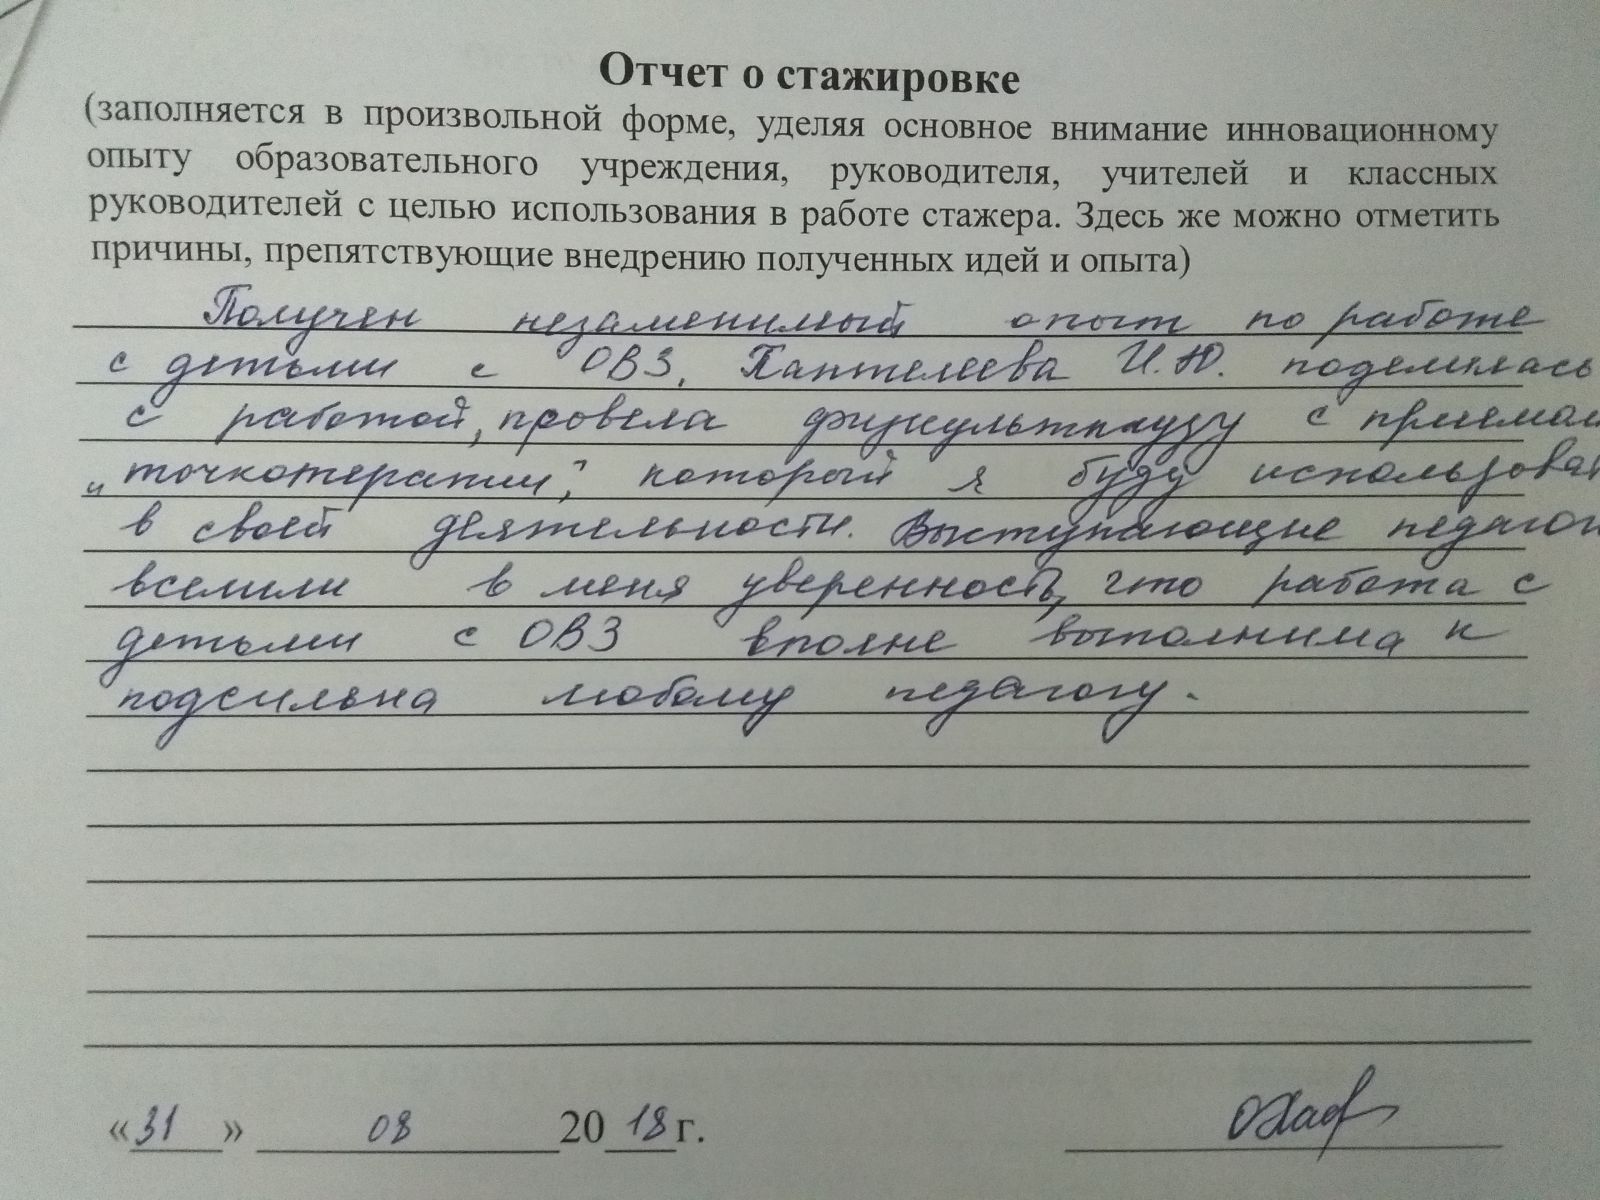 Отчет о стажировке
(заполняется в произвольной форме, уделяя основное внимание инновационному
опыту образовательного учреждения, руководителя, учителей и классных
руководителей с целью использования в работе стажера. Здесь же можно отметить
причины, препятствующие внедрению полученных идей и опыта)
Получен незаменимый опыт по работе
с детьми с ОВЗ, Пантелеева И.Ю. поделилась
с работой, провела физкультпаузу с приемом
„точкотерапии", который я буду использоват
в своей деятельности. Выступающие педагоги
вселили в меня уверенность, что работа с
детьми с ОВЗ вполне выполнима и
подсильна любому педагогу.
«31» 08 2018 г.